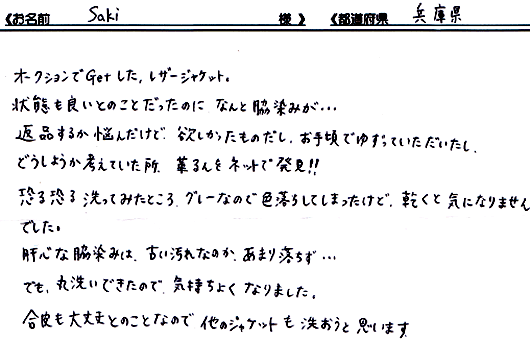 《お名前 Saki 様》《都道府県 兵庫県
オークションでGetした,レザージャケット。
状態も良いとのことだったのに なんと脇染みが…
返品するか悩んだけど、欲しかったものだし、お手頃でゆずっていただいたし、
どうしようか考えていた所、革るんをネットで発見!!
恐る恐る洗ってみたところ、グレーなので色落ちしてしまったけど、乾くと気になりません
でした。
肝心な脇染みは、古い汚れなのか、あまり落ちず…
でも、丸洗いできたので、気持ちよくなりました。
合皮も大丈夫とのことなので 他のジャケットも洗おうと思います